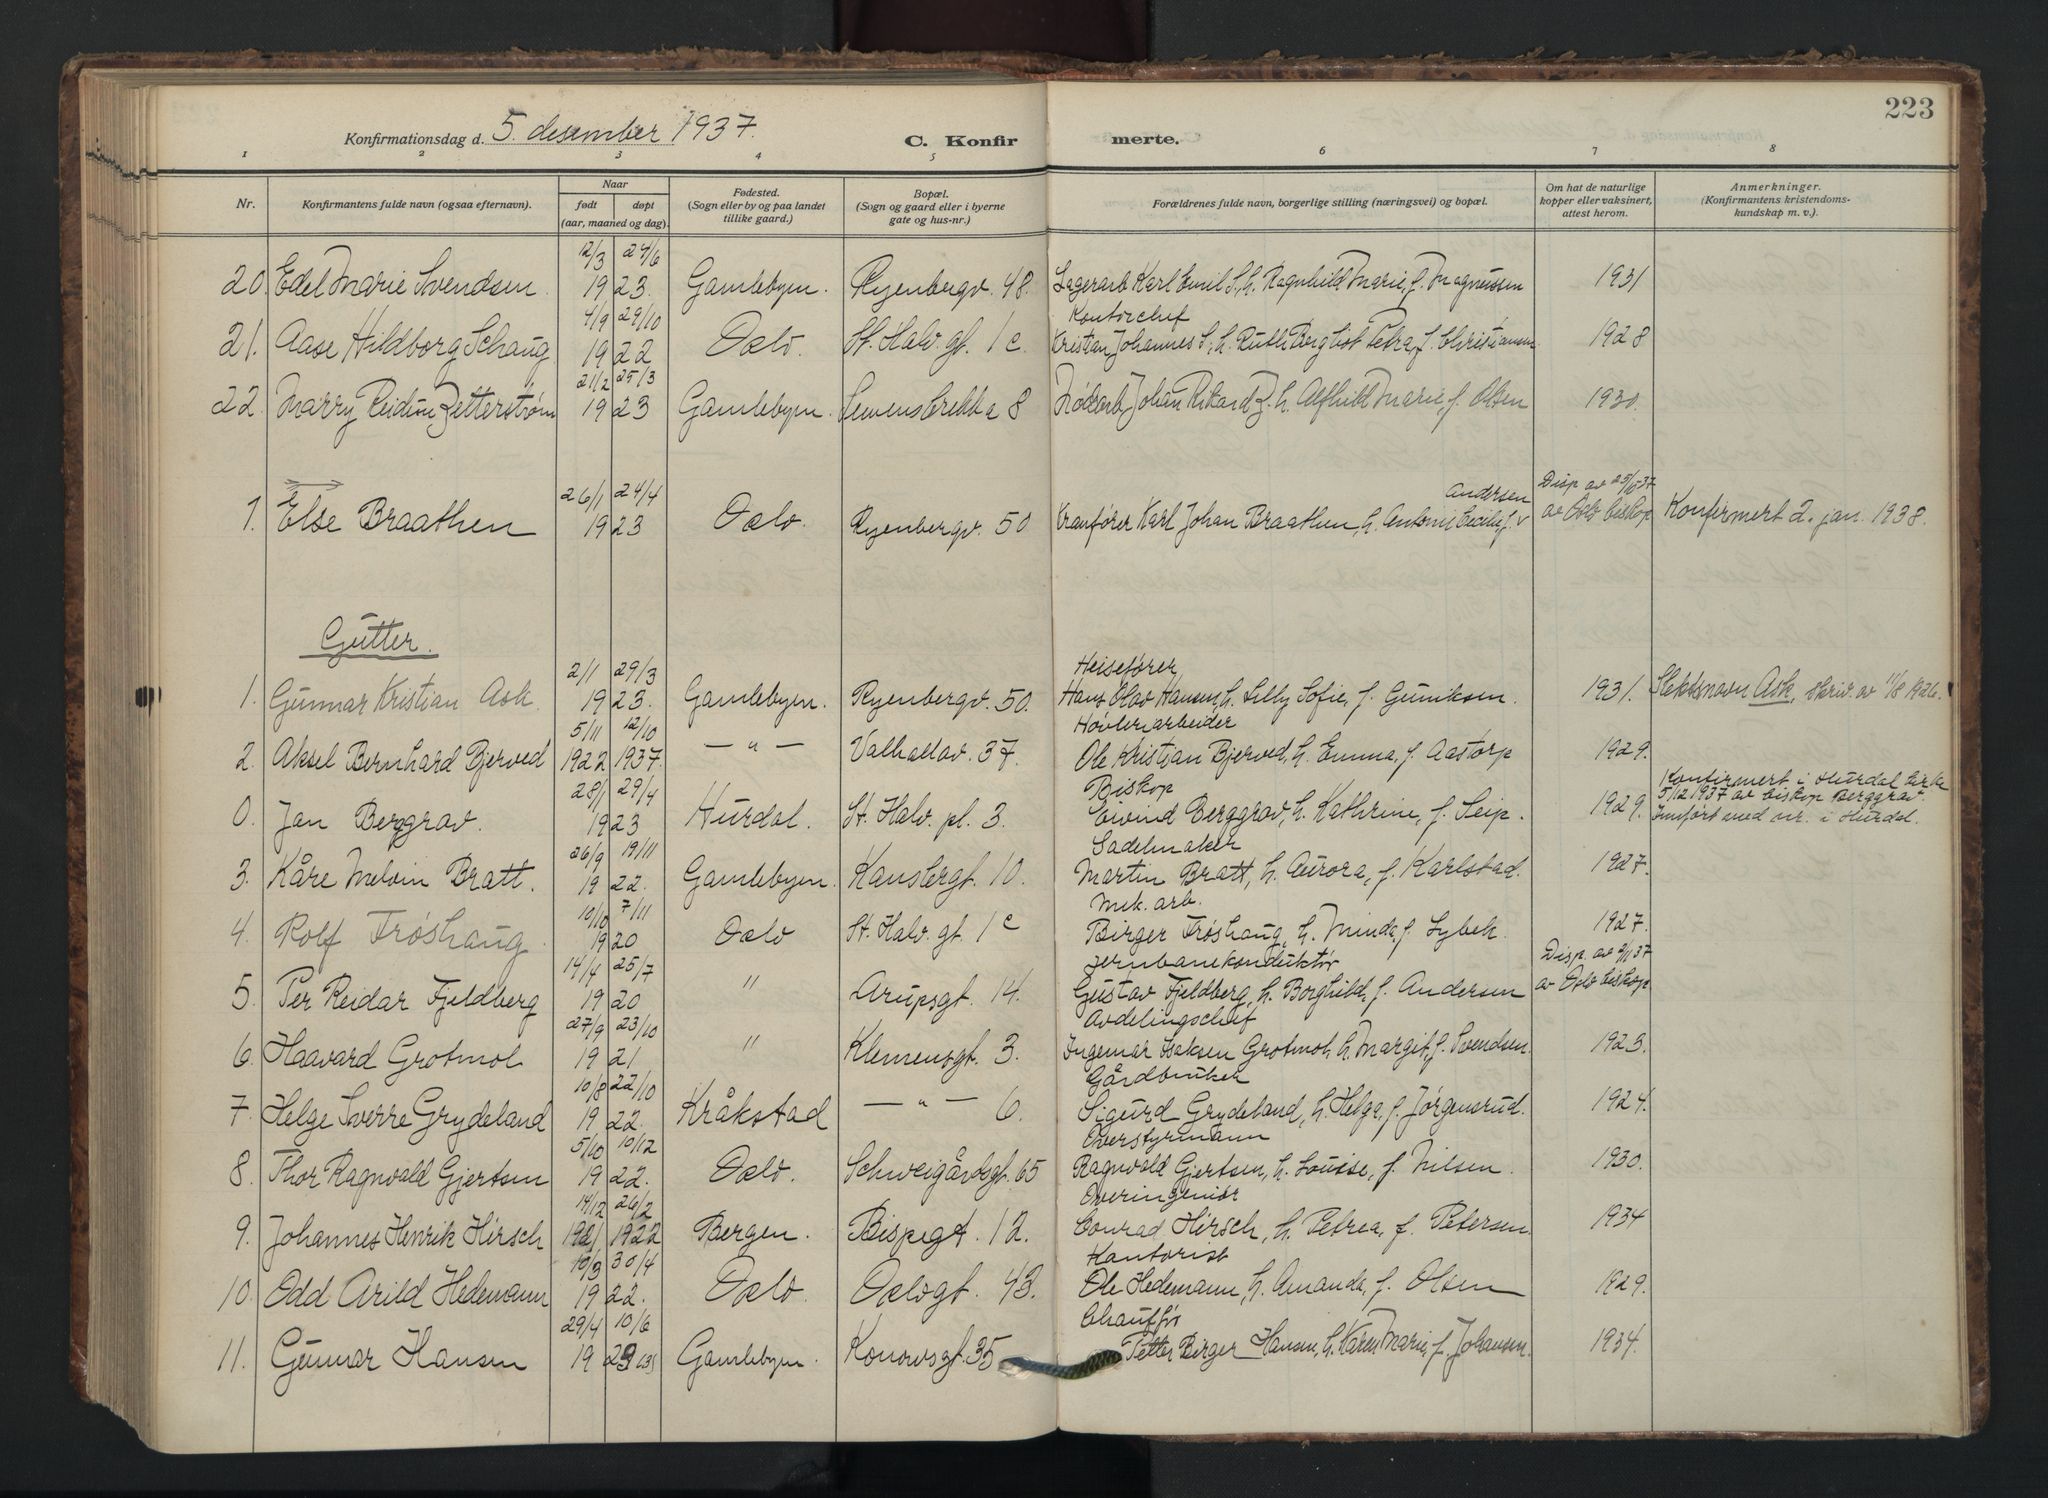 223
Konfirmationsdag d. 5. desember 1937. C. Konfir merte.
1 2 3 4 5 6 7 8
Nr. Konfirmantens fulde navn (ogsaa efternavn). Naar født døpt (aar, maaned og dag). Fødested. (Sogn eller by og paa landet tillike gaard.) Bopæl. (Sogn og gaard eller i byerne gate og hus-nr.) Forældrenes fulde navn, borgerlige stilling (næringsvei) og bopæl. Om hat de naturlige kopper eller vaksinert, attest herom. Anmerkninger. (Konfirmantens kristendoms-kundskap m. v.).
12/3 24/6
20. Edel Marie Svendsen. 19 23. Gamlebyen. Ryenbergv. 48. Lagerarb Karl Emil S, h. Ragnhild Marie, f. Magnussen 1931
4/9 29/10 Kontorchef
21. Aase Hildborg Schaug 19 22 Oslo. St. Halv. gt. 1 c. Kristian Johannes S, h. Ruth Bergliot Petra, f. Christiansen 1928
21/2 25/3
22. Marry Reidun Zetterstrøm 19 23 Gamlebyen. Simensbrekka 8 Johan Rikard Z. h. Alfhild Marie, f. Olsen 1930.
26/1 24/4 Andersen Disp av 25/10 37
1. Else Braathen 19 23 Oslo. Ryenbergv. 50 Kranfører Karl Johan Braathen, h. Antonie Cecilie f. v av Oslo biskop Konfirmert 2. jan. 1938.
Gutter.
2/1 29/3 Heisefører
1. Gunnar Kristian Ask. 19 23. Gamlebyen. Ryenbergv. 50. Hans Olav Hansen, h. Lilly Sofie, f. Guniksen. 1931. Slektsnavn Ask, skriv. av 11/8 1926.
5/11 12/10 Høvleriarbeider
2. Aksel Bernhard Bjerved 1922 1937. — " — Valhallav. 37. Ole Kristian Bjerved, h. Emma, f. Aastorp 1929.
28/1 29/4 Biskop Konfirmert i Hurdal kirke
0. Jan Berggrav. 19 23 Hurdal. St. Halv. pl. 3. Eivind Berggrav, h. Kathrine, f. Seip. 1929. 5/12 1937 av biskop Berggrav.
Innført med nr. i Hurdal.
26/9 19/11 Sadelmaker
3. Kåre Melvin Bratt. 19 22. Gamlebyen. Kanslergt. 10. Martin Bratt, h. Aurora, f. Karlstad. 1927.
10/10 7/11 Mek. arb.
4. Rolf Frøshaug. 19 20 Oslo St. Halv. gt. 1 c Birger Frøshaug, h. Minda, f. Lybek. 1927.
14/4 25/7 Jernbanekonduktør Disp. av 9/11 37
5. Per Reidar Fjeldberg 19 20 " Arupsgt. 14. Gustav Fjeldberg, h. Borghild, f. Andersen av Oslo biskop
27/9 23/10 Avdelingschef
6. Haavard Grotmol 19 21. " Klemensgt. 3. Ingemar Isaksen Grotmol, h. Margit, f. Svendsen. 1923.
10/8 22/10 Gårdbruker
7. Helge Sverre Grydeland 19 22. Kråkstad — " — 6. Sigurd Grydeland, h. Helga, f. Jørgensrud. 1924.
5/10 10/12 Overstyrmann
8. Thor Ragnvald Gjertsen 19 22. Oslo. Schweigårdsgt. 65 Ragnvald Gjertsen, h. Louise, f. Nilsen. 1930.
14/12 26/2 Overingeniør
9. Johannes Henrik Hirsch 1921 1922 Bergen. Bispegt. 12. Conrad Hirsch, h. Petrea, f. Petersen. 1934
10/3 30/4 Kontorist
10. Odd Arild Hedemann 19 22. Oslo. Oslogt. 43. Ole Hedemann, h. Amanda, f. Olsen 1929.
29/4 10/6 Chauffør
11. Gunnar Hansen 19 23 Gamlebyen. Konowsgt. 35 Petter Birger Hansen, h. Karen Marie, f. Johansen. 1934.